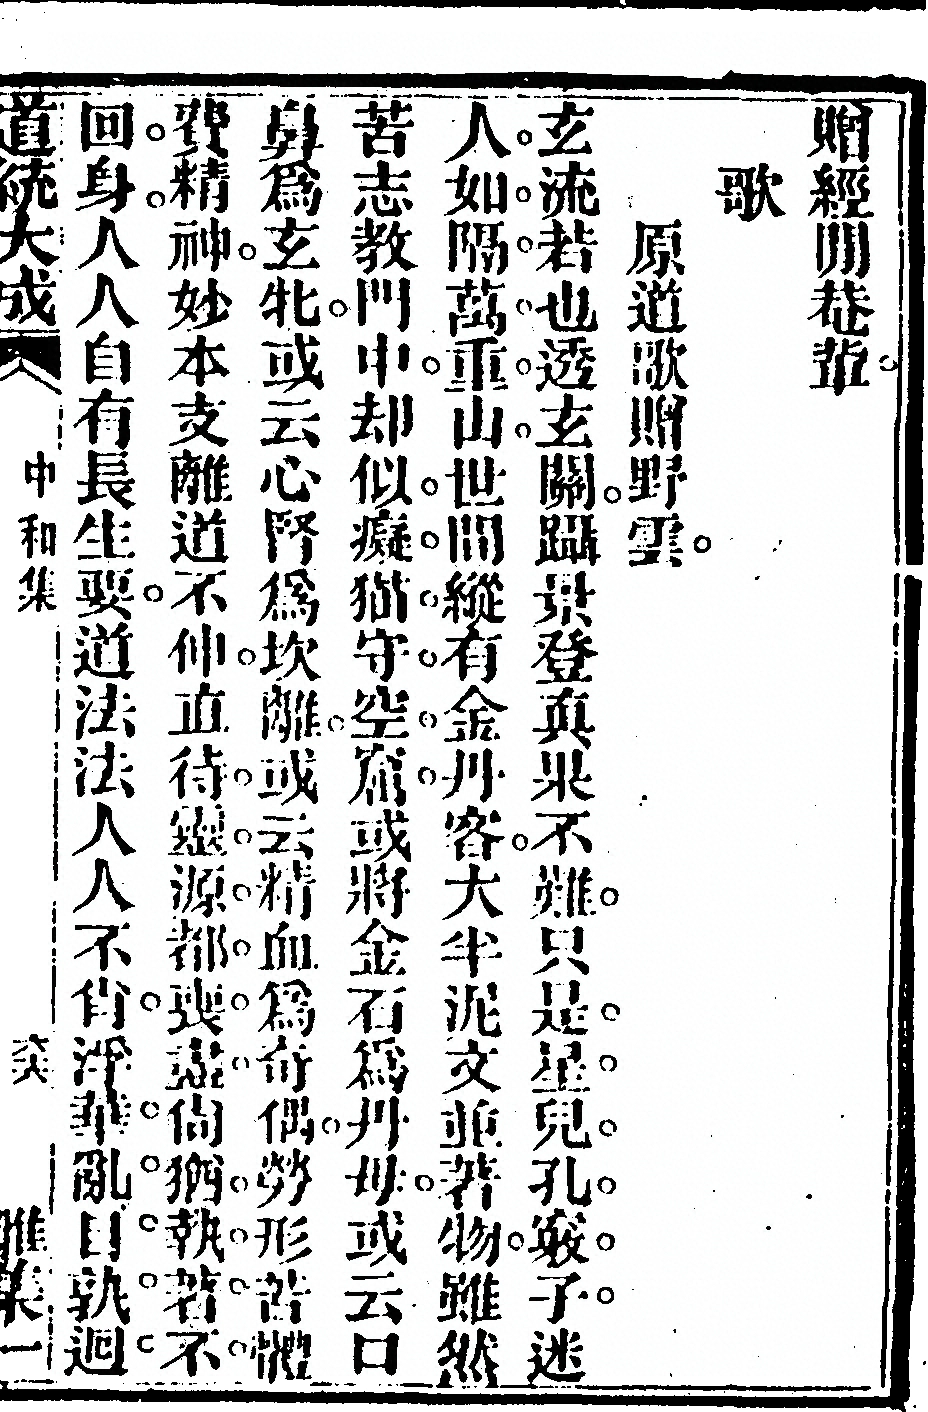 贈經閒菴
歌
原道歌贈野雲
玄流若也透玄關躡景登真果不難只是星兒孔竅子迷
人如隔萬重山世間縱有金丹客大半泥文並著物雖然
苦志教門中却似癡猫守空窟或將金石爲丹母或云口
鼻爲玄牝或云心腎爲坎離或云精血爲奇偶勞形苦體
費精神妙本支離道不伸直待靈源都喪盡尙猶執著不
回身人人自有長生要道法法人人不肯浮華亂目孰迴
道統大成 中和集 集一